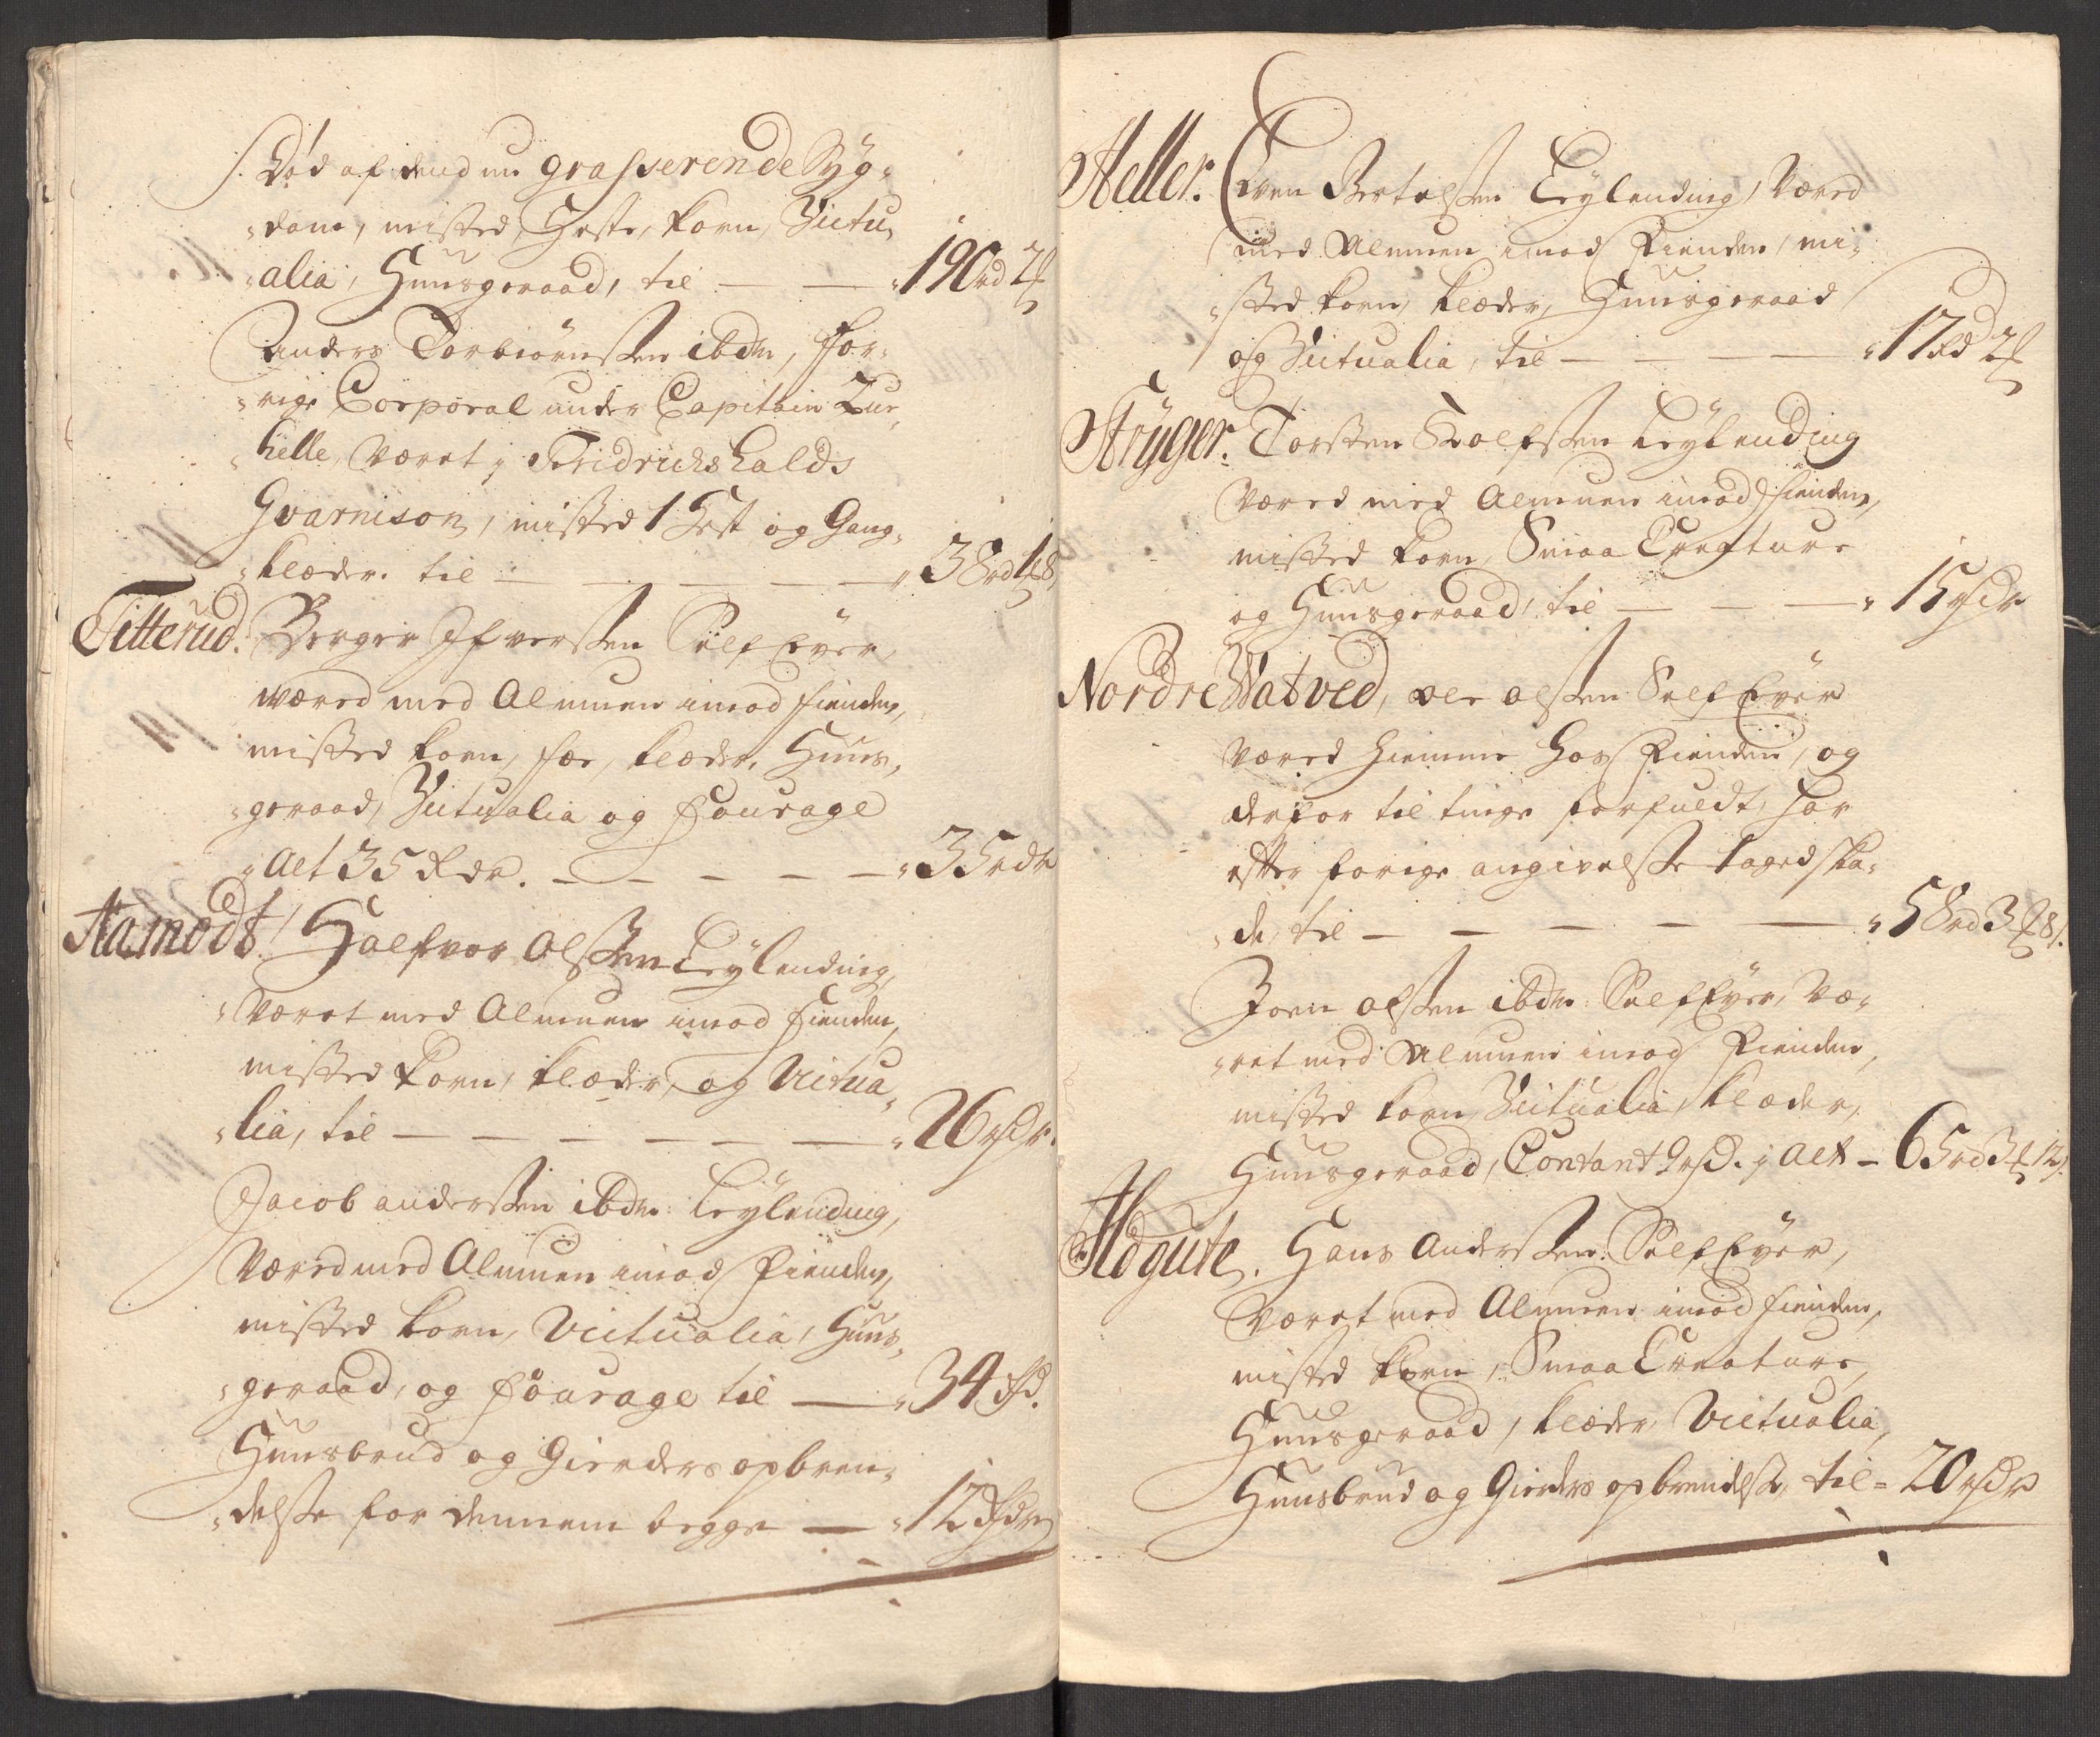 Død af dend nu grasserende Syg-
dom, misted, Heste, Korn, Victu-
alia, Huusgeraad, til — — 190 rd 2 ß
Anders Torbiørnssen ibdm, for-
rige Corporal under Capitain
hielle, Været i Fridrichshalds
Gvarnison, misted 1 Hest og Gang-
klæder. til — — — — 38 rd 1 ß 8
Titterud. Berger Ifverssen Self Eyer,
wæred med Almuen imod fienden,
misted Korn, fæ, klæder, Huus-
geraad, Victualia og fourage
Alt 35 Rdr. — — — — — 35 rdr
Aamodt. Halfvor Olssen Leÿlending,
Været med Almuen imod fienden,
misted Korn, klæder, og Victua-
lia, til — — — — — — 26 rdr.
Jacob anderssen ibdm: Leÿlending,
Væred med Almuen imod fienden,
misted Korn, Victualia, Huus-
geraad, og fourage til — 34 rd.
Huusbrud og Gierders opbren-
delsse for dennem begge — 12 rdr
Heller. Even Bertelssen Leÿlending, Væred
med Almuen imod Fienden, mi-
sted Korn, klæder, Huusgeraad
og Victualia, til — — — 17 rd 2 ß
Strÿger. Torsten Rolfssen Leÿlending
Væred med Almuen imod fienden,
misted Korn, Smaa Creature
og Huusgeraad, til — — — 15 rdr
Nordre Watved, ole olssen Self Eÿer
Væred hiemme hos Fienden, og
derfor til tinge forfuldt, har
efter forige angivelsse taged ska-
de, til — — — — — 58 rd 3 ß 8.
Joen olssen ibdm: Self Eyer, Væ-
ret med Almuen imod Fienden,
misted Korn, Victualia, klæder,
Huusgeraad, Contant 9 rd. i Alt — 65 rd 3 ß 12.
Aldgute. Hans Anderssen Self Eyer,
Været med Almuen imod fienden,
misted Korn, Smaa Creature,
Huusgeraad, klæder, Victualia,
Huusbrud og Gierders opbrendelsse, til — 20 rdr